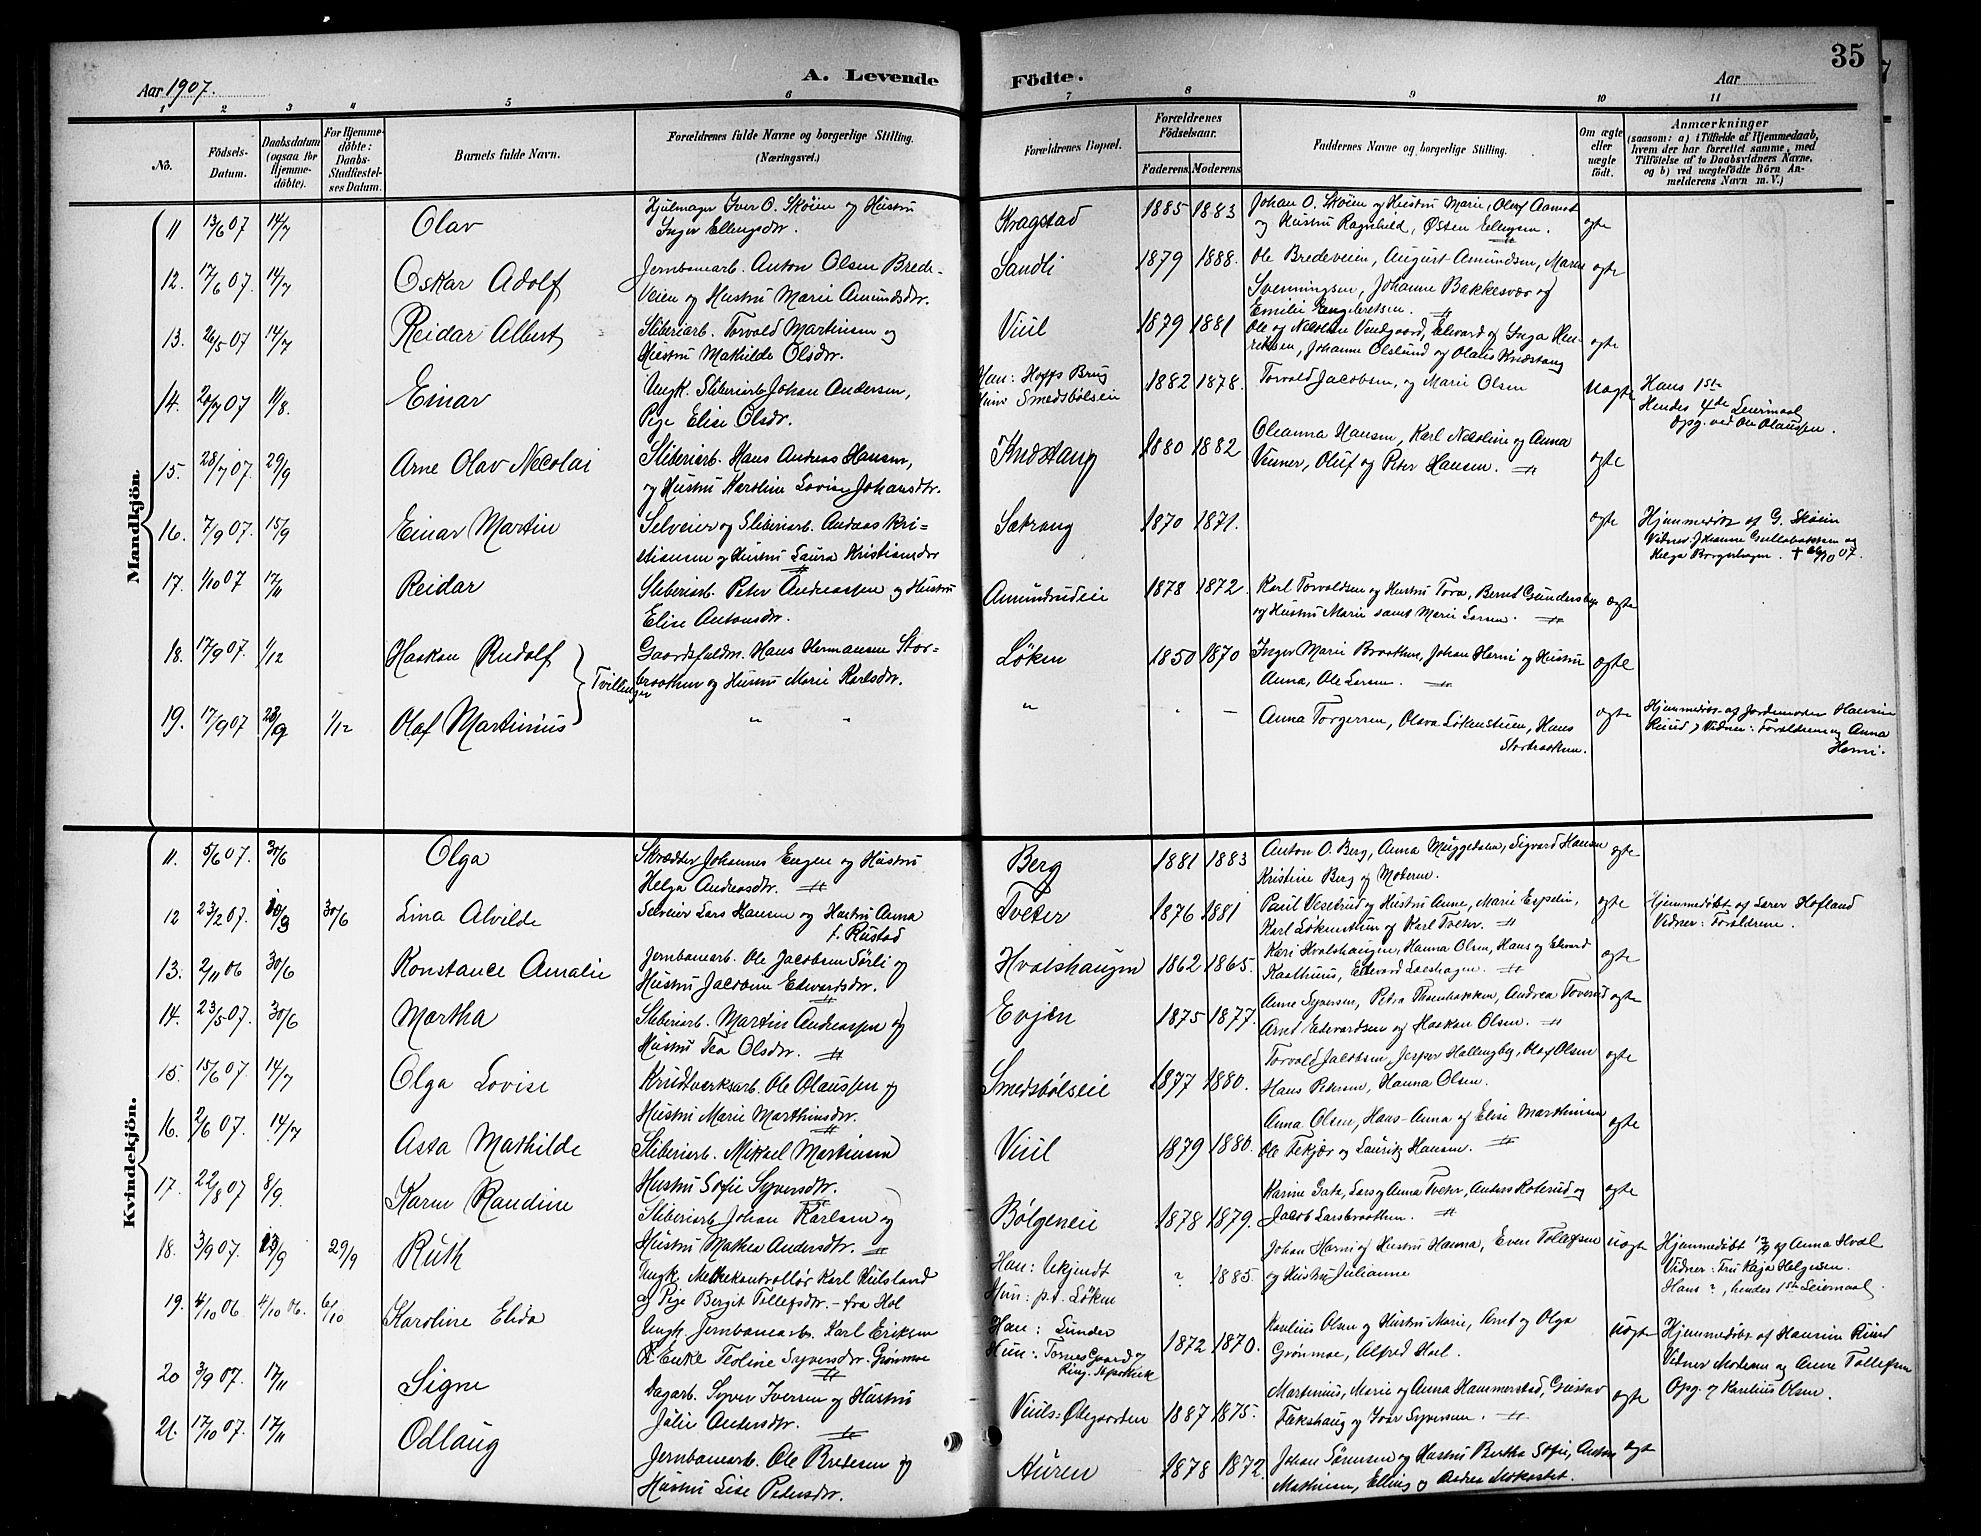 Aar 1907.
A. Levende
Födte.
Aar
35
1 2 3 4 5 6 7 8 9 10 11
No.
Födsels-
Datum.
Daabsdatum
(ogsaa for
Hjemme-
döbte).
For Hjemme-
döbte:
Daabs-
Stadfæstel-
ses Datum.
Barnets fulde Navn.
Forældrenes fulde Navne og borgerlige Stilling.
(Næringsvei.)
Forældrenes Bopæl.
Forældrenes
Födselsaar.
Faderens. Moderens.
Faddernes Navne og borgerlige Stilling.
Om ægte
eller
uægte
födt.
Anmærkninger
(saasom: a) i Tilfælde af Hjemmedaab,
hvem der har forrettet samme, med
Tilföielse af to Daabsvidners Navne,
og b) ved uægtefödte Börn An-
melderens Navn m. V.)
Mandkjön.
11 13/6 07 14/7 Olav
Hjulmager Iver O. Skøien og Hustru
Inger Ellingsdtr.
Kragstad 1885 1883
Johan O. Skøien og Hustru Marie, Olaf Aamot
og Hustru Ragnhild, Østen Ellingsen.
ægte
12. 17/6 07. 14/7 Oskar Adolf
Jernbanearb. Anton Olsen Brede-
veien og Hustru Marie Amundsdtr.
Sandli 1879 1888.
Ole Bredeveien, August Amundsen, Maren
Svenningsen, Johanne Bakkesvær og
Emilie Engebretsen.
ægte
13. 26/5 07 14/7 Reidar Albert
Sliberiarb. Torvald Martinsen og
Hustru Mathilde Olsdtr.
Viul 1879 1881
Ole og Nicoline Viulgaard, Edvard og Inga Hen-
riksen, Johanne Olslund og Olaus Knestang
ægte
14. 20/7 07 11/8. Einar
Ungk. Sliberiarb. Johan Andersen,
Pige Elise Olsdr.
Han: Hoffs Brug
Hun Smedsbølseie
1882 1878.
Torvald Jacobsen, og Marie Olsen
uægte
Hans 1ste
Hendes 4de Leiermaal
Opg. ved Ole Olaussen.
15. 28/7 07. 29/9 Arne Olav Nicolai
Sliberiarb. Hans Andreas Hansen,
og Hustru Karoline Lovise Johansdtr.
Knestang 1880 1882
Oleanna Hansen, Karl Nicoline og Anna
Versner, Oluf og Peter Hansen.
ægte
16. 7/9 07. 15/9 Einar Martin
Selveier og Sliberiarb. Andreas Kri-
stiansen og Hustru Laura Kristiansdtr
Sætrang 1870 1871.
ægte
Hjemmedøbt af G. Skøien
Vidner: Johanne Gulbrandsen og
Helga Borgerhagen. + 26/10 07.
17. 1/10 07 17/11 Reidar
Sliberiarb. Peter Andreassen og Hustru
Elise Antonsdtr.
Amundrudeie 1878 1872
Karl Torvaldsen og Hustru Tora, Bernt Gundersby
og Hustru Marie samt Marie Larsen.
ægte
18. 17/9 07. 1/12 Haakon Rudolf
Tvillinger
Gaardsfuldm. Hans Hermansen Stor-
braathen og Hustru Marie Karlsdtr.
Løken 1850 1870
Inger Marie Braathen, Johan Horni og Hustru
Anna, Ole Larsen.
ægte
19. 17/9 07 28/9 1/12 Olaf Martinius
" "
" " –
Anna Torgersen, Olava Løkenstuen, Hans
Storbraathen.
ægte
Hjemmedøbt af Jordemoder Hansine
Ruud, Vidner: Forældrene og Anna
Horni.
Kvindekjön.
11. 5/6 07. 30/6 Olga
Skrædder Johannes Engen og Hustru
Helga Andreasdtr.
Berg 1881 1883
Anton O. Berg, Anna Muggedalen, Sigvard Hansen
Kristine Berg og Moderen.
ægte
12 23/2 07. 10/3 30/6 Lina Alvilde
Selveier Lars Hansen og Hustru Anna
f. Rustad
Tveter 1876 1881
Paul Vestrud og Hustru Anne, Marie Espelin,
Karl Løkenstuen og Karl Tveter.
ægte
Hjemmedøbt af Lærer Hofland
Vidner: Forældrene.
13. 2/11 06 30/6 Konstance Amalie
Jernbanearb. Ole Jacobsen Sørli og
Hustru Jacobine Edvardsdtr.
Hvalshaugen 1862 1865.
Kari Hvalshaugen, Hanna Olsen, Hans og Edvard
Kaalhuus, Edvard Loeshagen.
ægte
14. 23/5 07. 30/6 Martha
Sliberiarb. Martin Andreassen og
Hustru Tea Olsdtr.
Evjen 1875 1877.
Anne Syversen, Petra Thornbakken, Andrea Toverud
Arnt Edvardsen og Haakon Olsen.
ægte
15. 15/6 07. 14/7 Olga Lovise
Krudtverksarb. Ole Olaussen og
Hustru Marie Marthinsdtr.
Smedsbølseie 1877 1880.
Torvald Jacobsen, Jesper Hallingby, Olaf Olsen
Hans Petersen, Hanna Olsen.
ægte
16. 2/6 07. 14/7 Asta Mathilde
Sliberiarb. Mikael Martinsen
Hustru Sofie Syversdtr.
Viul 1879 1880.
Anna Olsen, Hans-Anna og Elise Marthinsen
Ole Fekjær og Lauritz Hansen.
ægte
17. 22/8 07 8/9. Karen Randine
Sliberiarb. Johan Karlsen og
Hustru Mathea Andersdtr.
Bølgeneie 1878 1879.
Karine Gata, Lars og Anna Tveter, Anders Roterud og
Jacob Larsbraathen.
ægte
18. 3/9 07. 13/9 29/9 Ruth
Ungk. Melkekontrollør Karl Hulsland
og Pige Bergit Tollefsdtr. – fra Hol
Han: Ukjendt
Hun: p.t. Løken
? 1885.
Johan Horni og Hustru Hanna, Even Tollefsen
og Hustru Julianne
uægte
Hjemmedøbt 13/9 af Anna Hval
Vidner: Fru Kaja Helgesen.
Hans ?, hendes 1ste Leiermaal.
19. 4/10 06 4/10 06. 6/10 Karoline Elida
Ungk. Jernbanearb. Karl Eriksen
& Enke Teoline Syversdtr. Grønmoe
Han: Sunder
Hun: Tornes Gaard og
Ring. Apothek
1872 1870.
Karelius Olsen og Hustru Marie, Arnt og Olga
Grønmoe, Alfred Hoel.
uægte
Hjemmedøbt af Hansine Ruud
Vidner Moderen og Anne Tollefsen
Opg. af Karelius Olsen.
20 3/9 07. 17/11 Signe
Dagarb. Syver Iversen og Hustru
Julie Andersdtr.
Viuls-Ødegaarden 1887 1875.
Martinius, Marie og Anna Hammerstad, Gustav
Fækshaug og Ivar Syversen.
ægte
21. 17/10 07. 17/11 Odlaug
Jernbanearb. Ole Bredesen og
Hustru Lise Pedersdtr.
Auren 1878 1872.
Johan Sørensen og Hustru Bertha Sofie, Anders
Mathisen, Elling og Andrea Mokastet.
ægte